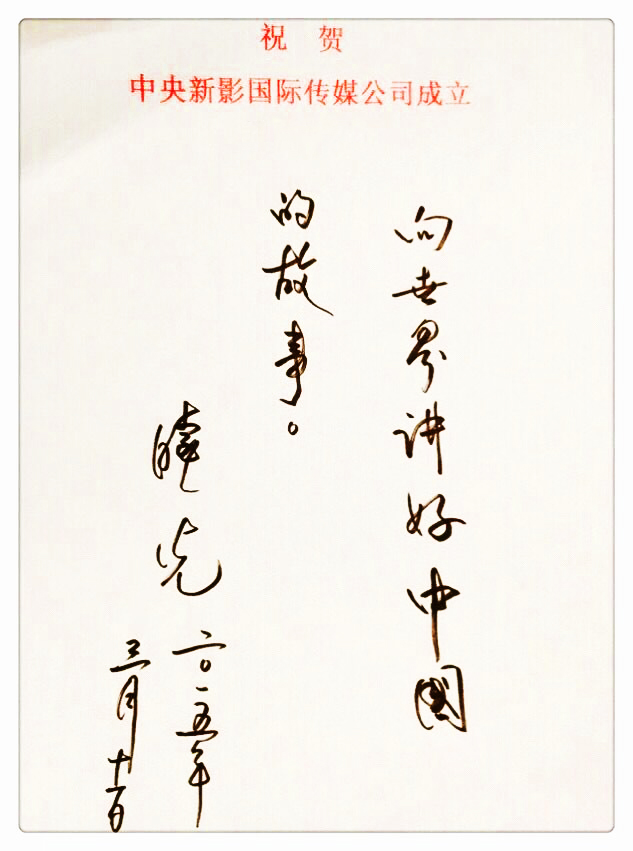 祝贺
中央新影国际传媒公司成立
向世界讲好中國
的故事。
曉光
二〇一五年
三月十一日